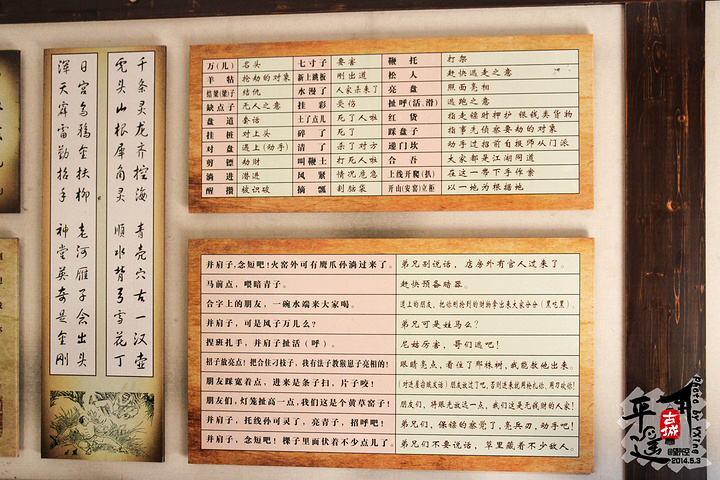 千条灵龙齐控海 青壳穴古一汉壶
虎头山根犀角灵 顺水背弓雪花丁
日宫乌鸦金扶柳 老河雁子念出头
浑天霹雷勤招手 神堂英奇是金刚
万(儿) 名头 七寸子 要害 鞭托 打架
羊牯 抢劫的对象 新上跳板 刚出道 松人 赶快逃走之意
结梁(梁)子 结仇 水漫了 人家杀来了 亮盘 照面亮相
缺点子 无人之意 挂彩 受伤 扯呼(活、滑) 逃跑之意
盘道 套话 土了点儿 死了人啦 红货 指走镖时押护 银钱类货物
挂桩 对上头 碎了 死了 踩盘子 指事先侦察要劫的对象
对盘 遇上(动手) 清了 杀了对方 递门坎 动手过招前自报师从门派
剪镖 劫财 叫鞭土 打死人啦 合吾 大家都是江湖同道
淌进 潜进 风紧 情况危急 上线开爬(扒) 在这一带下手作案
醒攒 被识破 摘瓢 割脑袋 开山(安窑)立柜 以一地为根据地
并肩子,念短吧!火窑外可有鹰爪孙淌过来了。 弟兄别说话,店房外有官人过来了。
马前点,喂暗青子。 赶快预备暗器。
合字上的朋友,一碗水端来大家喝。 道上的朋友,把你刚抢到的财物拿出来大家分分(黑吃黑)。
并肩子,可是风子万儿么? 弟兄可是姓马么?
捏班扎手,并肩子扯活(呼)。 尼姑厉害,哥们逃吧!
招子放亮点!把合住刁枝子,我有法子教猴崽子亮相的! 眼睛亮点,看住了那株树,我能教他出来。
朋友踩宽着点,进来是条子扫,片子咬! (对进屋劫贼友话)朋友放过了吧,否则进来就用枪扎你,用刀砍你!
朋友们,灯笼扯高一点,我们这是个黄草窑子! 朋友们,将眼光放远一点,我们这是无钱财的人家!
并肩子,托线孙可灵了,亮青子,招呼吧! 弟兄们,保镖的察觉了,亮兵刃,动手吧!
并肩子,念短吧!棵子里面伏着不少点儿了。 弟兄们不要说话,草里藏着不少敌人。
平遥古城
Photo by Mine
2014.5.3